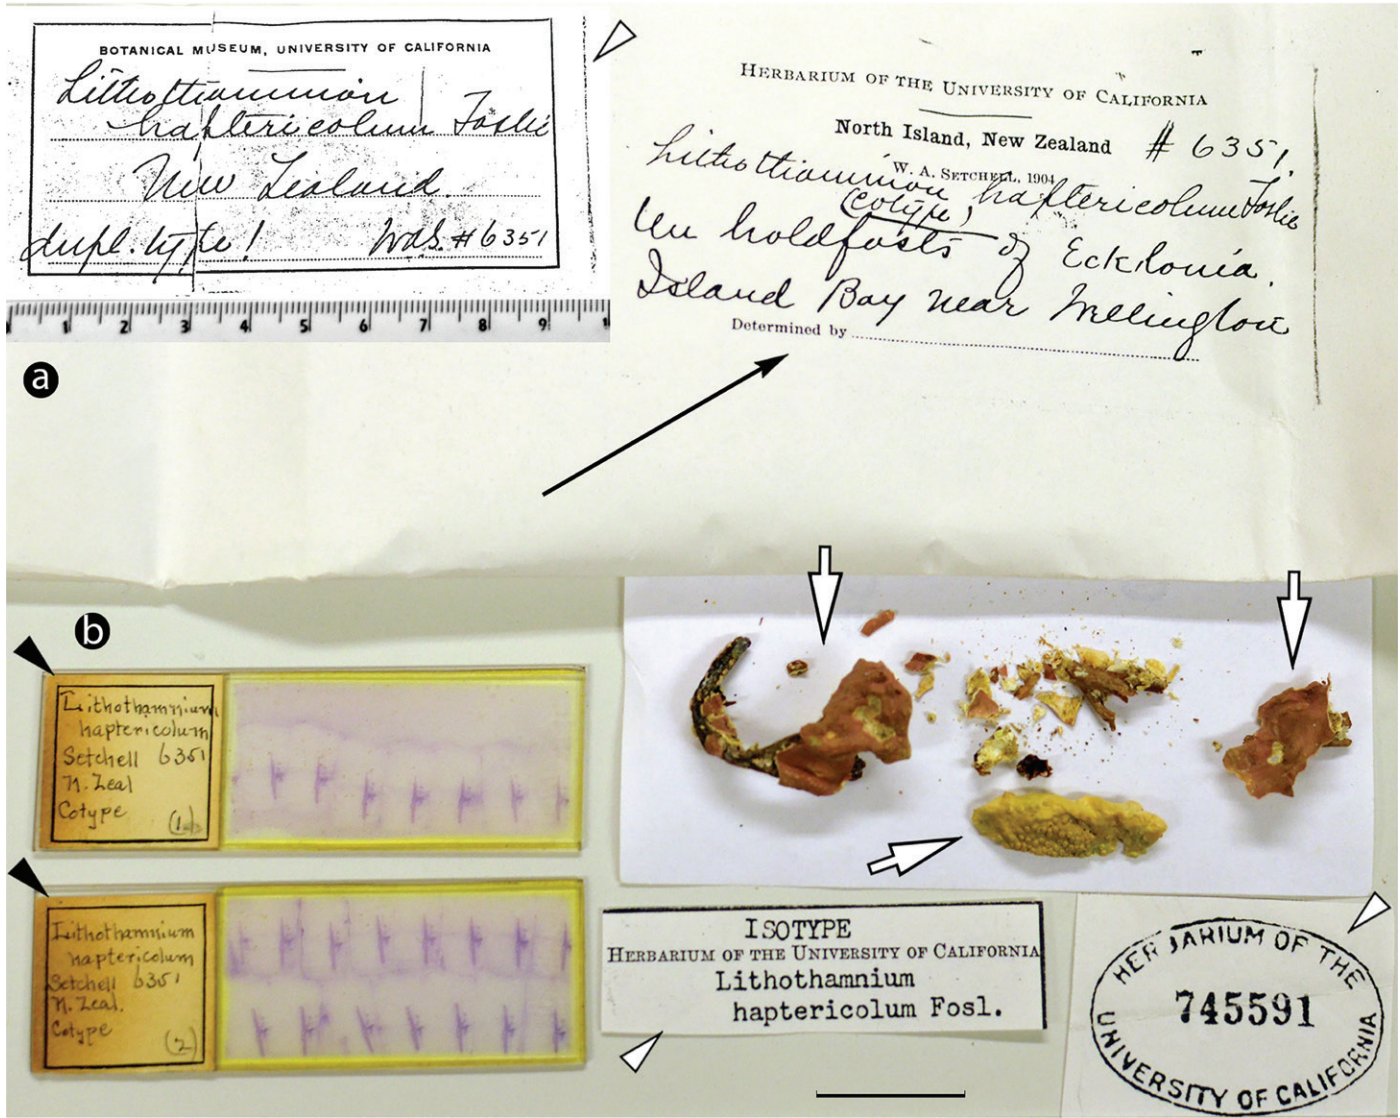 BOTANICAL MUSEUM, UNIVERSITY OF CALIFORNIA
Lithothamnion
haptericolum Foslie
New Zealand.
dupl. type! was. #6351
1 2 3 4 5 6 7 8 9
HERBARIUM OF THE UNIVERSITY OF CALIFORNIA
North Island, New Zealand # 6351.
W. A. SETCHELL, 1904
Lithothamnion haptericolum Foslie
(cotype)
On holdfasts of Ecklonia.
Island Bay near Wellington
Determined by
a
b
Lithothamnium
haptericolum
Setchell 6351
N. Zeal
Cotype
(1)
Lithothamnium
haptericolum
Setchell 6351
N. Zeal.
Cotype
(2)
ISOTYPE
HERBARIUM OF THE UNIVERSITY OF CALIFORNIA
Lithothamnium
haptericolum Fosl.
HERBARIUM OF THE
745591
UNIVERSITY OF CALIFORNIA